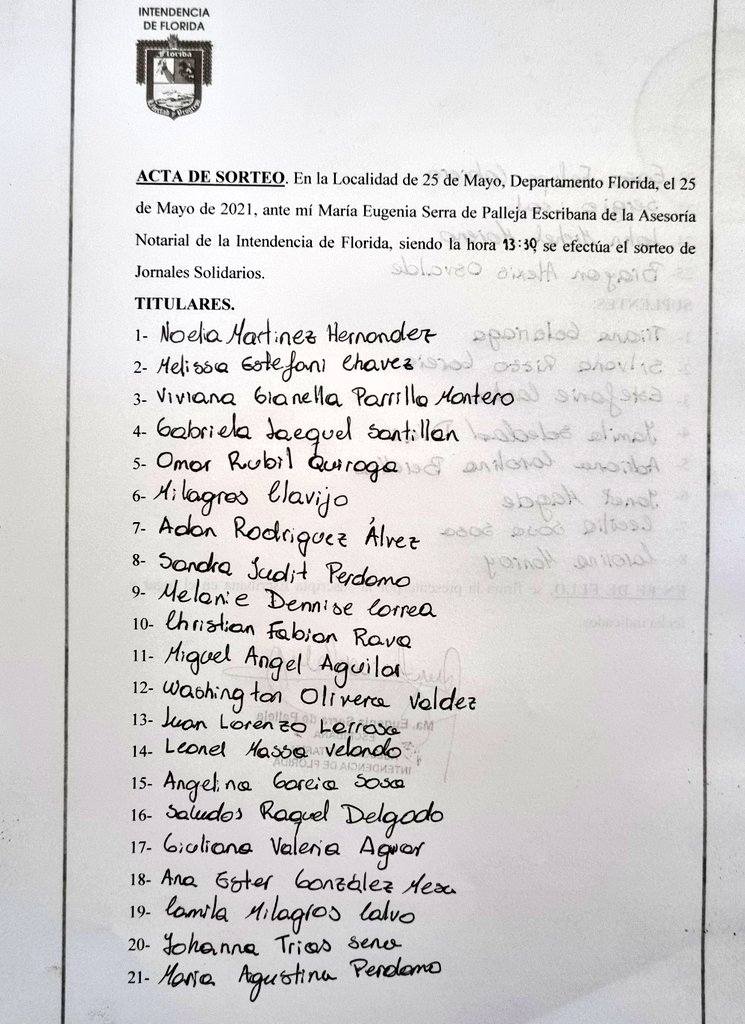 INTENDENCIA
DE FLORIDA
Florida
Libertad y Progreso
ACTA DE SORTEO. En la Localidad de 25 de Mayo, Departamento Florida, el 25
de Mayo de 2021, ante mí María Eugenia Serra de Palleja Escribana de la Asesoría
Notarial de la Intendencia de Florida, siendo la hora 13:30 se efectúa el sorteo de
Jornales Solidarios.
TITULARES.
1- Noelia Martinez Hernandez
2- Melissa Estefani Chavez
3- Viviana Gianella Parrilla Montero
4- Gabriela Jaequel Santillan
5- Omar Rubil Quiroga
6- Milagros Clavijo
7- Adan Rodriguez Álvez
8- Sandra Judit Perdomo
9- Melanie Dennise Correa
10- Christian Fabian Rava
11- Miguel Angel Aguilar
12- Washington Olivera Valdez
13- Juan Lorenzo Larrosa
14- Leonel Massa Velando
15- Angelina Garcia Sosa
16- Saludos Raquel Delgado
17- Giuliana Valeria Aguiar
18- Ana Ester González Mesa
19- Camila Milagros Calvo
20- Johanna Trias Sena
21- Maria Agustina Perdomo